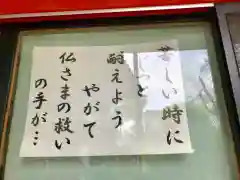 苦しい時に
じっと
耐えよう
やがて
仏さまの救い
の手が…